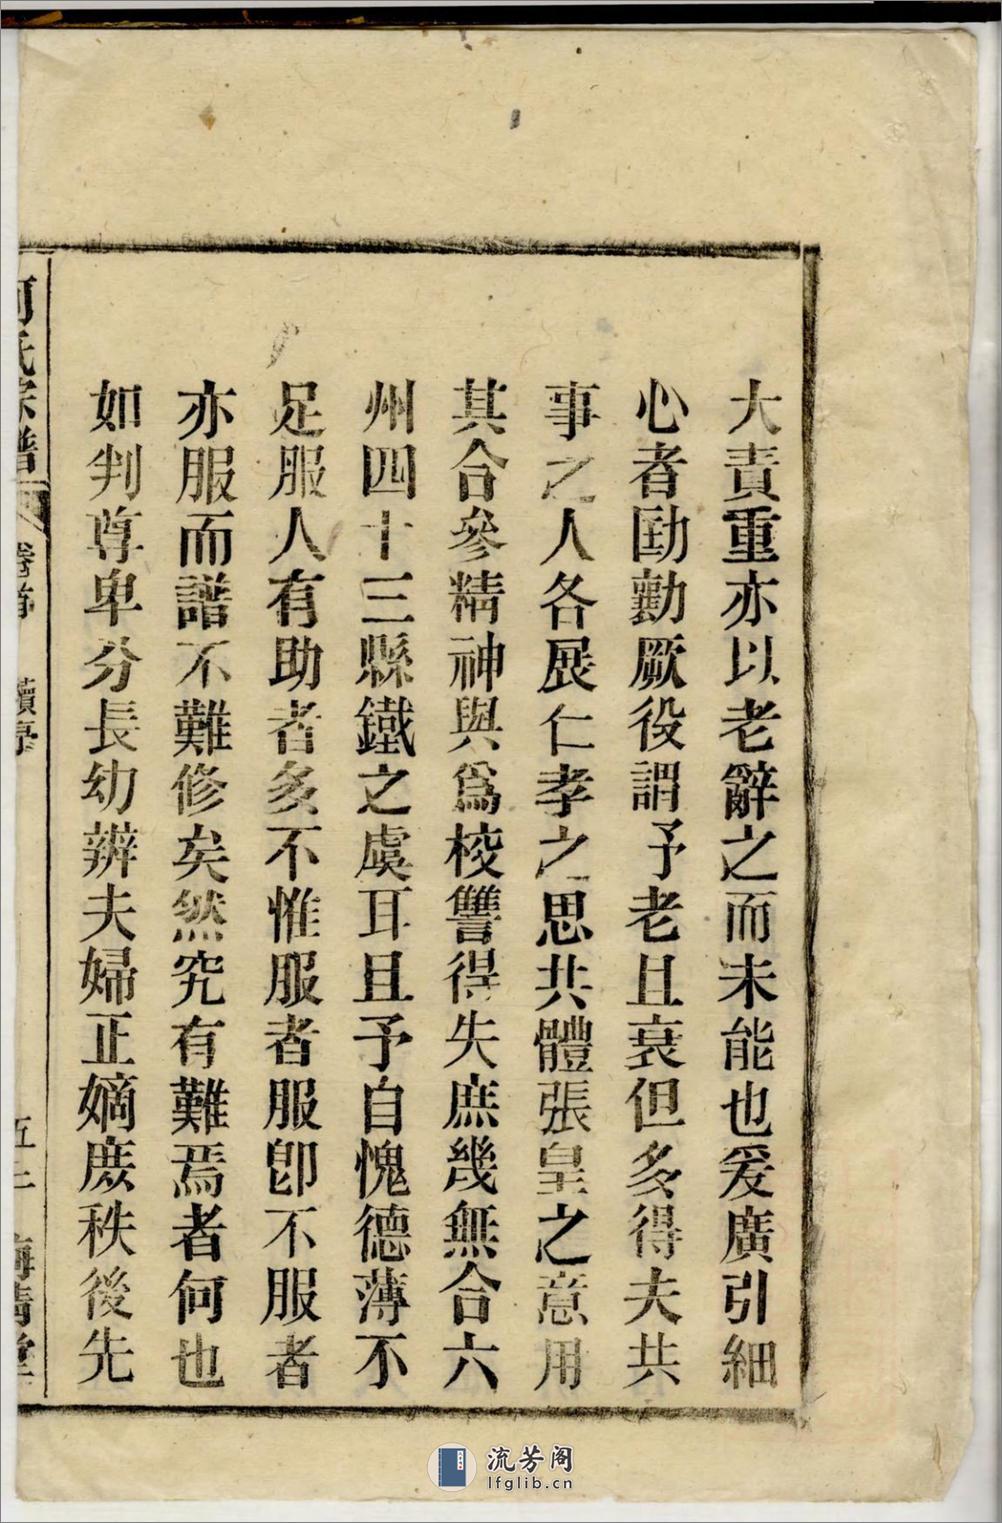 大責重亦以老辭之而未能也爰廣引細
心者勷厥役謂予老且衰但多得夫共
事之人各展仁孝之思共體張皇之意用
其合參精神與爲校讐得失庶幾無合六
州四十三縣鐵之虞耳且予自愧德薄不
足服人有助者多不惟服者服卽不服者
亦服而譜不難修矣然究有難焉者何也
如判尊卑分長幼辨夫婦正嫡庶秩後先
何氏宗譜 卷首 續序 五十 堂
流芳阁
lfglib.cn